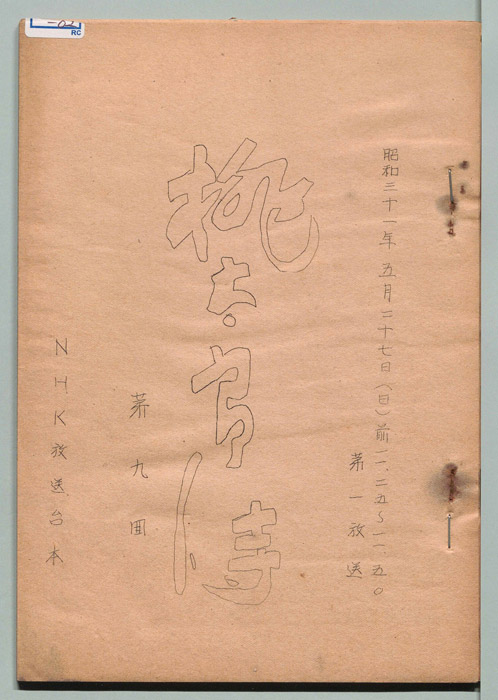 昭和三十一年 五月二十七日(日)前一一.二五~一一.五〇
第一放送
桃太郎侍
第九回
NHK放送台本
RC